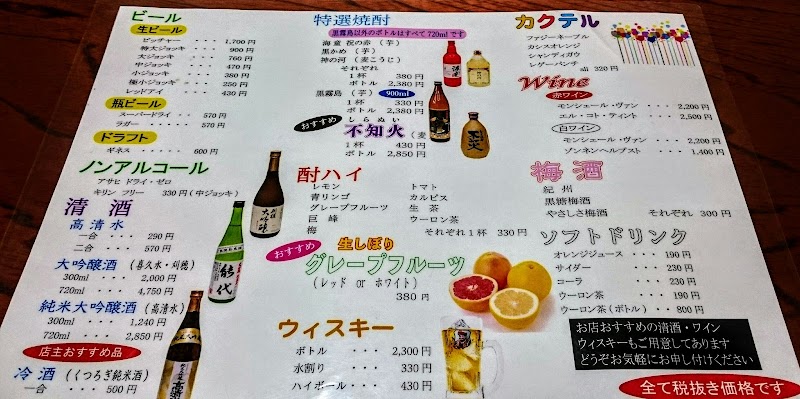 ビール
生ビール
ピッチャー ・・・ 1,700 円
特大ジョッキ ・・・ 900 円
大ジョッキ ・・・ 760 円
中ジョッキ ・・・ 470 円
小ジョッキ ・・・ 380 円
極小ジョッキ ・・・ 250 円
レッドアイ ・・・ 430 円
瓶ビール
スーパードライ ・・ 570 円
ラガー ・・・ 570 円
ドラフト
ギネス ・・・・・ 600 円
ノンアルコール
アサヒ ドライ・ゼロ
キリン フリー 330 円 (中ジョッキ)
清 酒
高清水
一合 ・・・ 290 円
二合 ・・・ 570 円
大吟醸酒 (喜久水・刈穂)
300ml ・・・ 2,000 円
720ml ・・・ 4,750 円
純米大吟醸酒 (高清水)
300ml ・・・ 1,240 円
720ml ・・・ 2,850 円
店主おすすめ品
冷 酒 (くつろぎ純米酒)
一合 ・・・ 500 円
特選焼酎
黒霧島以外のボトルはすべて 720ml です
海童 祝の赤 (芋)
黒かめ (芋)
神の河 (麦こうじ)
それぞれ
1 杯 380 円
ボトル 2,380 円
黒霧島 (芋) 900ml
1 杯 330 円
ボトル 2,380 円
おすすめ
しらぬい
不知火 (麦
1 杯 430
ボトル 2,850 円
酎ハイ
レモン トマト
青リンゴ カルピス
グレープフルーツ 生 茶
巨 峰 ウーロン茶
梅 それぞれ 1 杯 330 円
おすすめ
生しぼり
グレープフルーツ
(レッド or ホワイト)
380 円
ウィスキー
ボトル ・・・ 2,300 円
水割り ・・・ 330 円
ハイボール・・・ 430 円
カクテル
ファジーネーブル
カシスオレンジ
シャンディガウ
レゲーパンチ
all 320 円
Wine
赤ワイン
モンシェール・ヴァン ・・・ 2,200 円
エル・コト・ティント ・・・ 2,500 円
白ワイン
モンシェール・ヴァン ・・・ 2,200 円
ゾンネンヘルプスト ・・・ 1,400 円
梅 酒
紀 州
黒糖梅酒
やさしさ梅酒 それぞれ 300 円
ソフトドリンク
オレンジジュース ・・・ 190 円
サイダー ・・・ 230 円
コーラ ・・・ 230 円
ウーロン茶 ・・・ 190 円
ウーロン茶 (ボトル) ・・ 800 円
お店おすすめの清酒・ワイン
ウィスキーもご用意してあります
どうぞお気軽にお申し付けください
全て税抜き価格です
大吟醸
能代